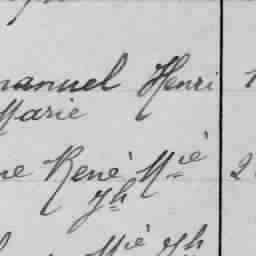 manuel Henri 1
Marie
ne René Mie 2
Jh
Mie Jh